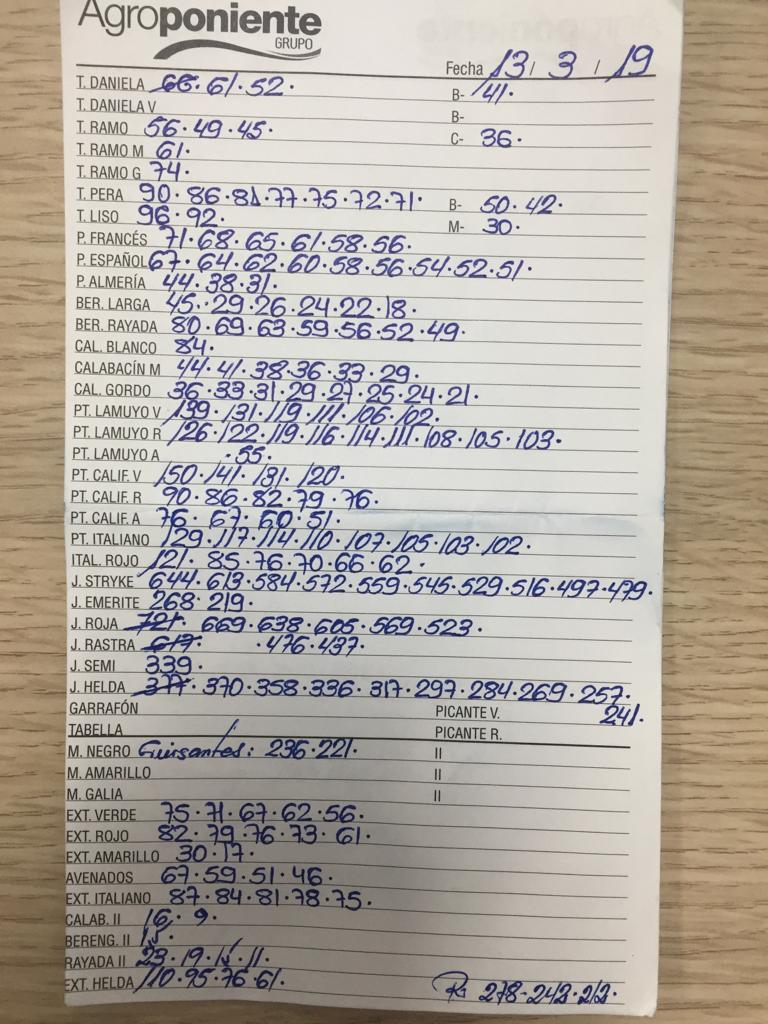 Agroponiente
GRUPO
Fecha 13/ 3 / 19
T. DANIELA 66. 61. 52. B- 41.
T. DANIELA V B-
T. RAMO 56. 49. 45. C- 36.
T. RAMO M 61.
T. RAMO G 74.
T. PERA 90. 86. 81. 77. 75. 72. 71. B- 50. 42.
T. LISO 96. 92. M- 30.
P. FRANCÉS 71. 68. 65. 61. 58. 56.
P. ESPAÑOL 67. 64. 62. 60. 58. 56. 54. 52. 51.
P. ALMERÍA 44. 38. 31.
BER. LARGA 45. 29. 26. 24. 22. 18.
BER. RAYADA 80. 69. 63. 59. 56. 52. 49.
CAL. BLANCO 84.
CALABACÍN M 44. 41. 38. 36. 33. 29.
CAL. GORDO 36. 33. 31. 29. 27. 25. 24. 21.
PT. LAMUYO V 139. 131. 119. 111. 106. 102.
PT. LAMUYO R 126. 122. 119. 116. 114. 111. 108. 105. 103.
PT. LAMUYO A . 55.
PT. CALIF. V 150. 141. 131. 120.
PT. CALIF. R 90. 86. 82. 79. 76.
PT. CALIF. A 76. 67. 60. 51.
PT. ITALIANO 129. 117. 114. 110. 107. 105. 103. 102.
ITAL. ROJO 121. 85. 76. 70. 66. 62.
J. STRYKE 644. 613. 584. 572. 559. 545. 529. 516. 497. 479.
J. EMERITE 268. 219.
J. ROJA 721. 669. 638. 605. 569. 523.
J. RASTRA 617. . 476. 437.
J. SEMI 339.
J. HELDA 377. 370. 358. 336. 317. 297. 284. 269. 257.
GARRAFÓN PICANTE V. 241.
TABELLA PICANTE R.
M. NEGRO Guisantes: 236. 221. II
M. AMARILLO II
M. GALIA II
EXT. VERDE 75. 71. 67. 62. 56.
EXT. ROJO 82. 79. 76. 73. 61.
EXT. AMARILLO 30. 17.
AVENADOS 67. 59. 51. 46.
EXT. ITALIANO 87. 84. 81. 78. 75.
CALAB. II 16. 9.
BERENG. II 15.
RAYADA II 23. 19. 15. 11.
EXT. HELDA 110. 95. 76. 61. R: 278-242-212.